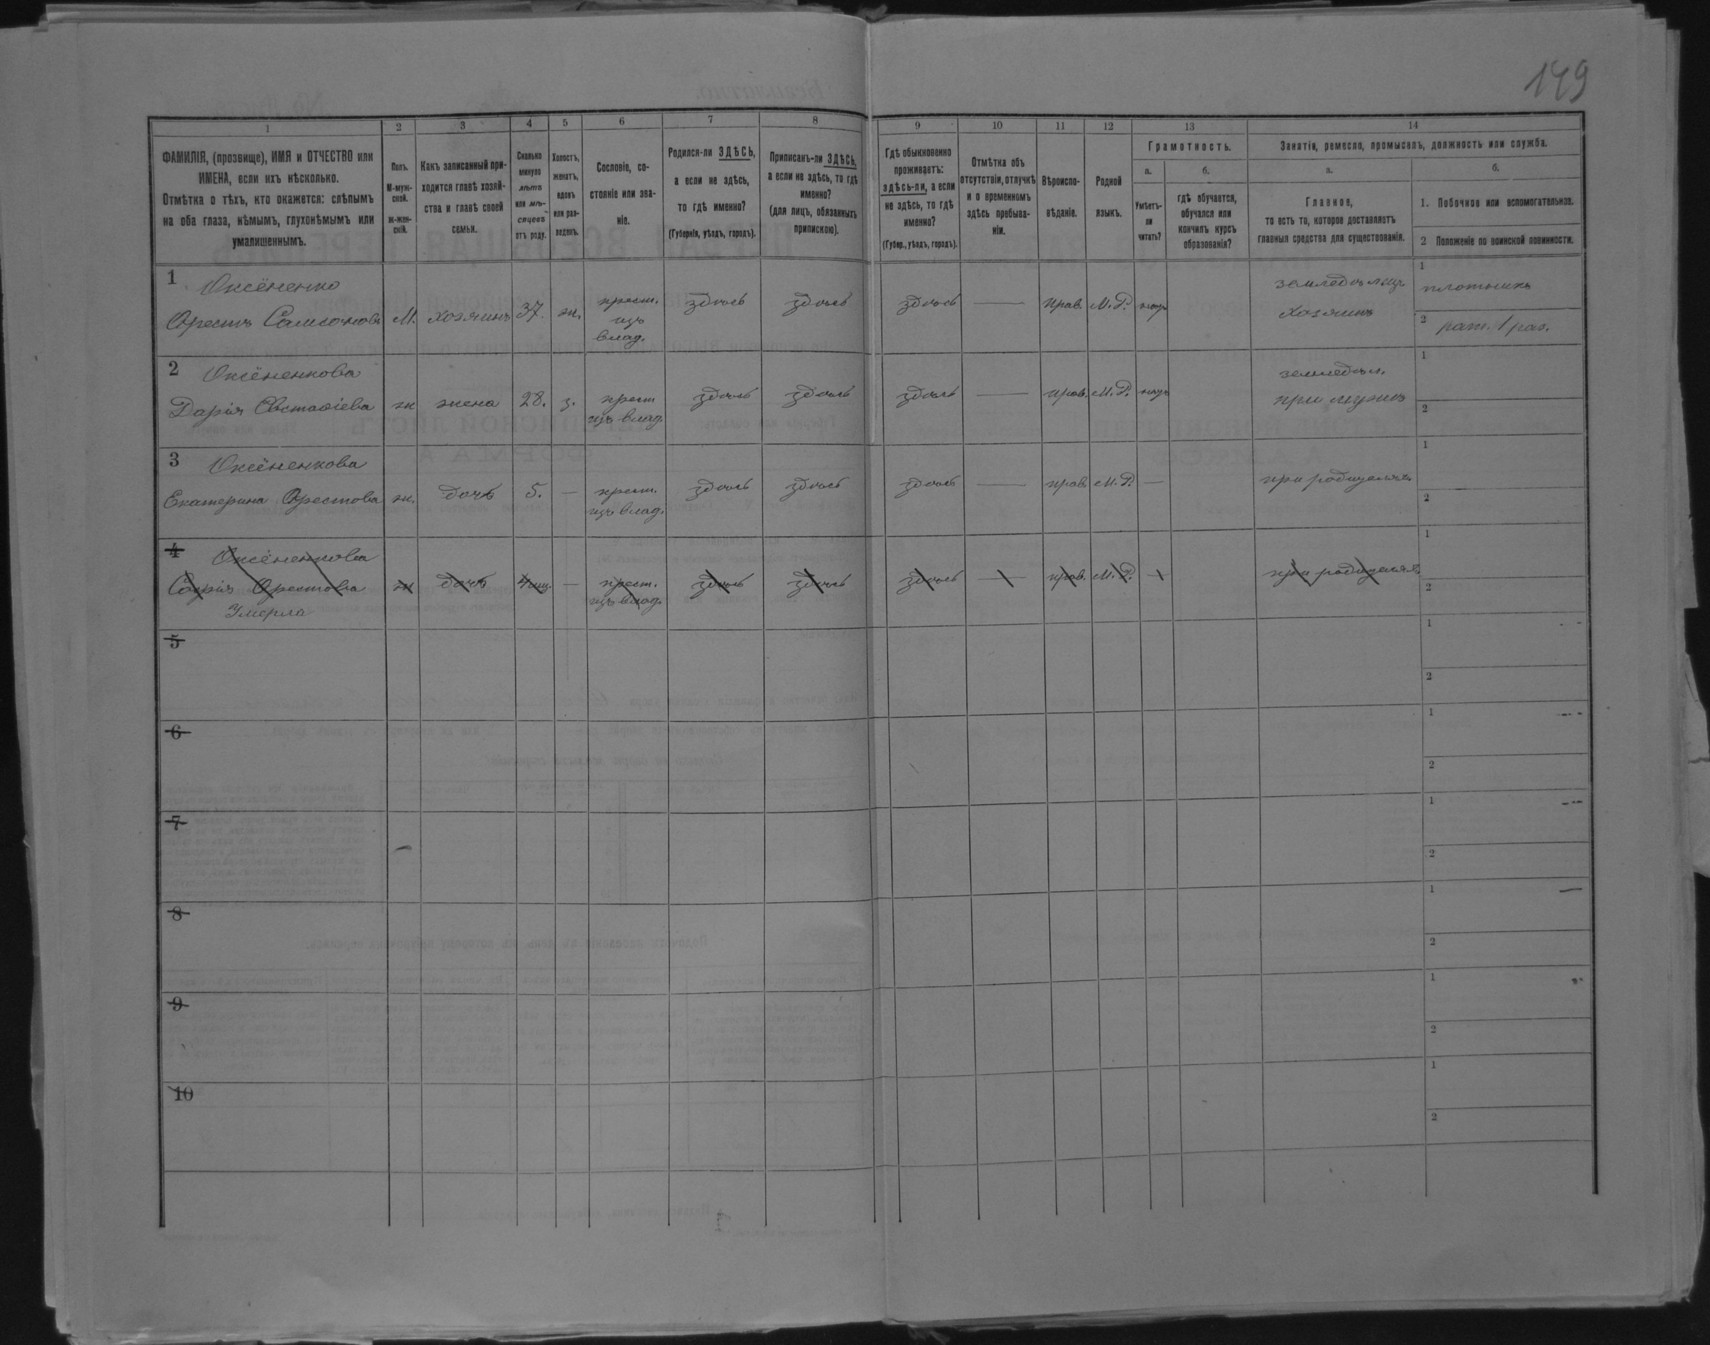 149
1 2 3 4 5 6 7 8 9 10 11 12 13 14
ФАМИЛІЯ, (прозвище), ИМЯ и ОТЧЕСТВО или
ИМЕНА, если ихъ нѣсколько.
Отмѣтка о тѣхъ, кто окажется: слѣпымъ
на оба глаза, нѣмымъ, глухонѣмымъ или
умалишеннымъ.
Полъ.
М-муж-
ской.
ж-жен-
скій.
Какъ записанный при-
ходится главѣ хозяй-
ства и главѣ своей
семьи.
Сколько
минуло
лѣтъ
или мѣ-
сяцевъ
отъ роду.
Холостъ,
женатъ,
вдовъ
или раз-
веденъ.
Сословіе, со-
стояніе или зва-
ніе.
Родился-ли ЗДѢСЬ,
а если не здѣсь,
то гдѣ именно?
(Губернія, уѣздъ, городъ).
Приписанъ-ли ЗДѢСЬ,
а если не здѣсь, то гдѣ
именно?
(для лицъ, обязанныхъ
припискою).
Гдѣ обыкновенно
проживаетъ:
здѣсь-ли, а если
не здѣсь, то гдѣ
именно?
(Губер., уѣздъ, городъ).
Отмѣтка объ
отсутствіи, отлучкѣ
и о временномъ
здѣсь пребыва-
ніи.
Вѣроиспо-
вѣданіе.
Родной
языкъ.
Грамотность.
а.
Умѣетъ-
ли
читать?
б.
гдѣ обучается,
обучался или
кончилъ курсъ
образованія?
Занятіе, ремесло, промыселъ, должность или служба.
а.
Главное,
то есть то, которое доставляетъ
главныя средства для существованія.
б.
1. Побочное или вспомогательное.
2 Положеніе по воинской повинности.
1
Оксёненко
Орестъ Самсоновъ
М.
хозяинъ
37.
ж.
крест.
изъ
влад.
здѣсь
здѣсь
здѣсь
—
прав.
М. Р.
земледѣлец
Хозяинъ
1
плотникъ
2
рат. 1 раз.
2
Оксёненкова
Дарія Евстафіева
ж
жена
28.
з.
крест
изъ влад.
здѣсь
здѣсь
здѣсь
—
прав.
М. Р.
земледѣл.
при мужѣ
1
2
3
Оксёненкова
Екатерина Орестова
ж.
дочь
5.
—
крест.
изъ влад.
здѣсь
здѣсь
здѣсь
—
прав
М. Р.
—
при родителяхъ
1
2
4
Оксёненкова
Марія Орестова
Умерла
ж
дочь
4 мѣс.
—
крест.
изъ влад.
здѣсь
здѣсь
здѣсь
—
прав.
М. Р.
—
при родителяхъ
1
2
5
1
2
6
1
2
7
1
2
8
1
2
9
1
2
10
1
2